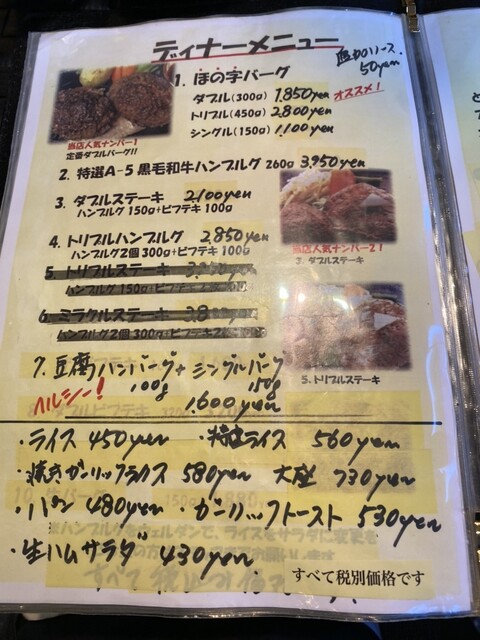 ディナーメニュー
ソース.
50yen
1. ほの字バーグ
ダブル(300g) 1.850yen オススメ!
トリプル(450g) 2.800yen
シングル(150g) 1.100yen
当店人気ナンバー1
定番ダブルバーグ!!
2. 特選A-5 黒毛和牛ハンブルグ 260g 3.950yen
3. ダブルステーキ 2.100yen
ハンブルグ 150g+ビフテキ 100g
4. トリプルハンブルグ 2.850yen
ハンブルグ2個 300g+ビフテキ 100g
当店人気ナンバー2!
3. ダブルステーキ
5. トリプルステーキ
ハンブルグ 150g+ビフテキ
6. ミラクルステーキ
ハンブルグ2個 300g+ビフテキ
5. トリプルステーキ
7. 豆腐ハンバーグ+シングルバーグ
100g 150g
ヘルシー! 1.600yen
・ライス 450yen ・特盛ライス 560yen
・焼きガーリックライス 580yen 大盛 730yen
・パン 480yen ・ガーリックトースト 530yen
・生ハムサラダ 430yen
すべて税別価格です